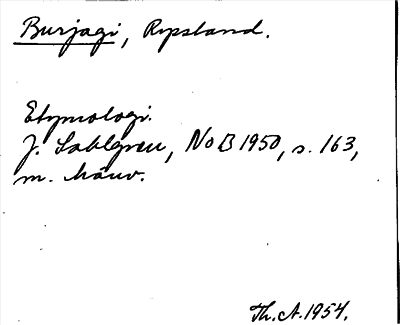 Burjagi, Rysland.
Etymologi.
J. Sahlgren, NoB 1950, s. 163,
m. hänv.
Th. A. 1954.